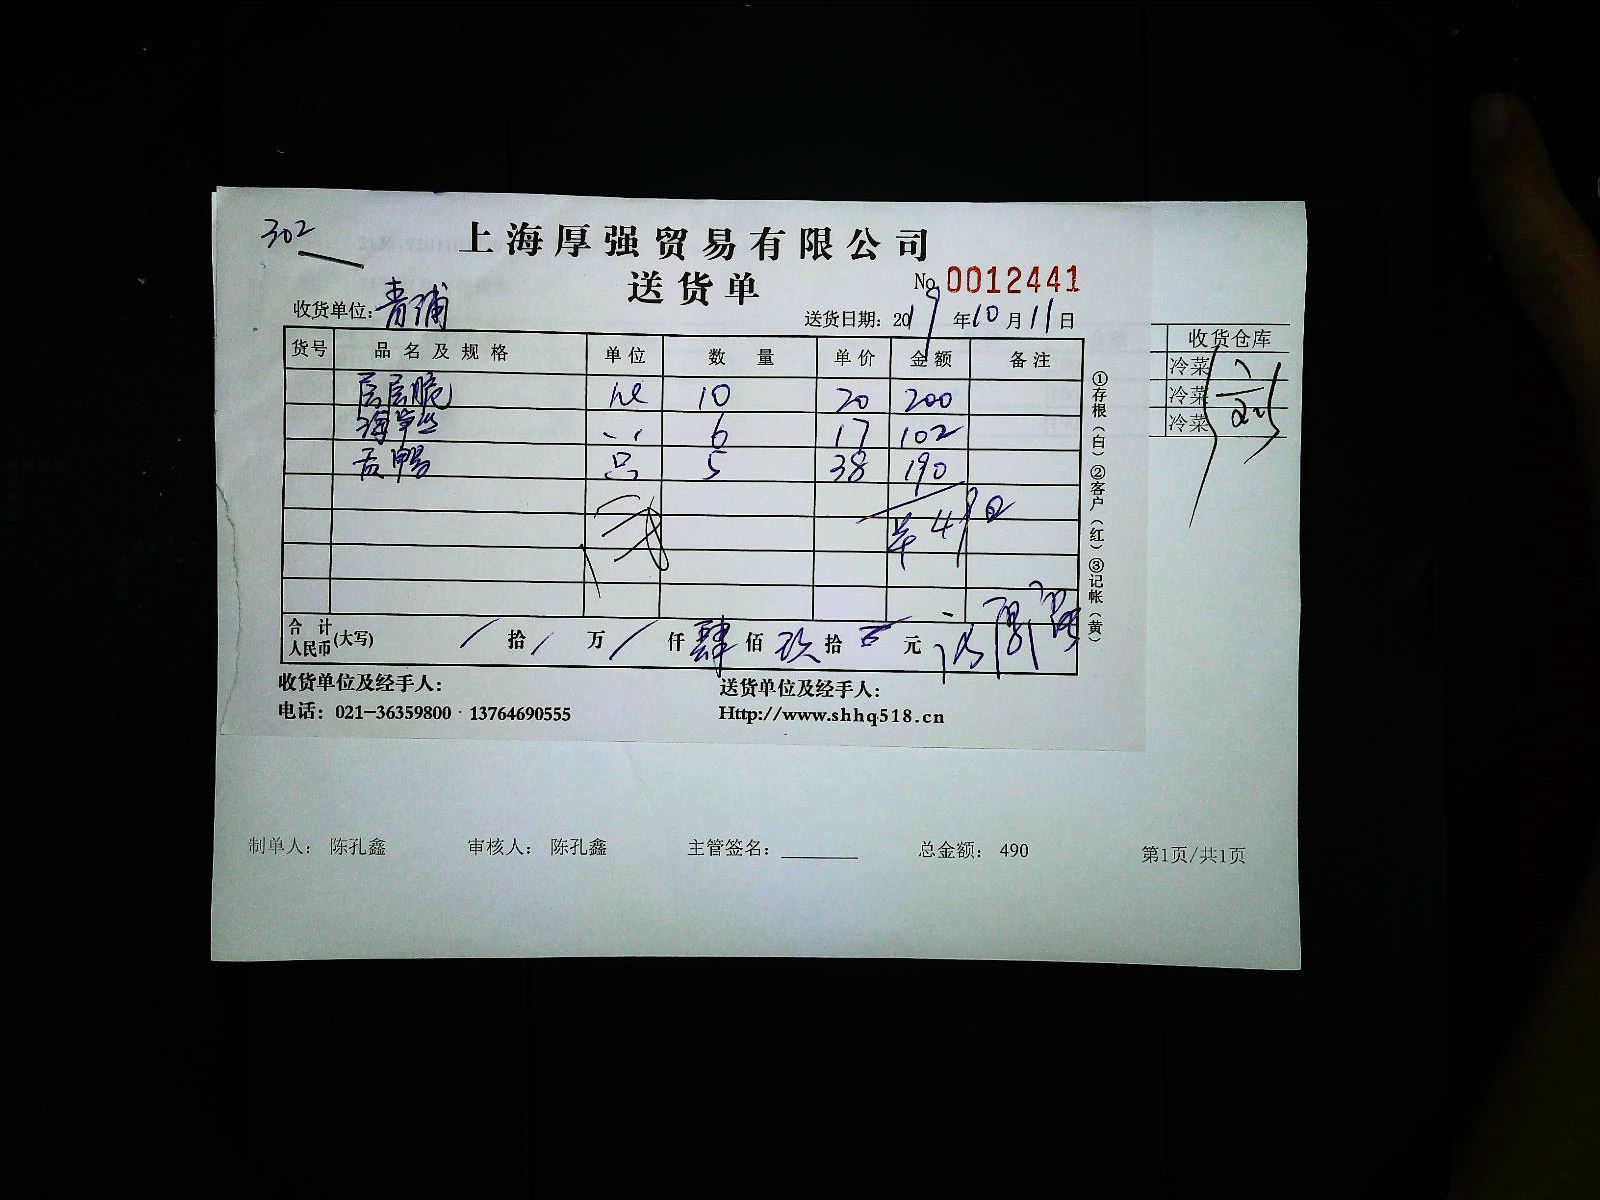 302
上海厚强贸易有限公司
送货单
No 0012441
收货单位：青浦
送货日期：2019年10月11日
货号 品名及规格 单位 数量 单价 金额 备注
层层脆 10 20 200
海草丝 6 17 102
5 38 190
合计人民币(大写) / 拾 / 万 / 仟 肆 佰 玖 拾 元
①存根（白）②客户（红）③记帐（黄）
收货单位及经手人：
送货单位及经手人：
电话：021-36359800 · 13764690555
Http://www.shhq518.cn
收货仓库
冷菜
冷菜
冷菜
制单人： 陈孔鑫 审核人： 陈孔鑫 主管签名：______ 总金额： 490 第1页/共1页